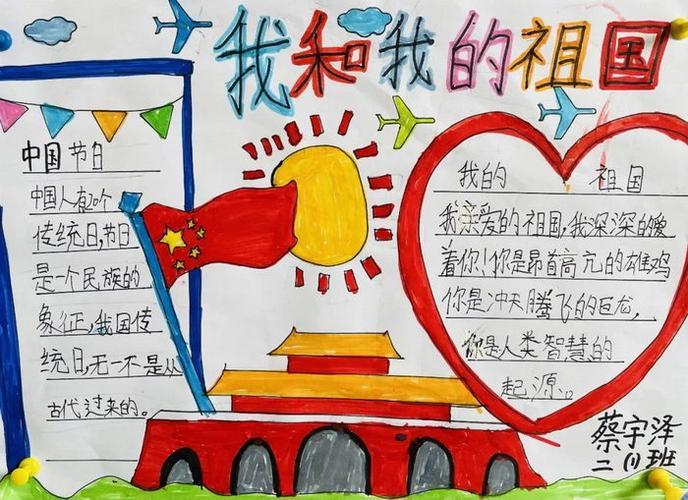 我和我的祖国
中国节日
中国人有20个
传统日,节日
是一个民族的
象征,我国传
统日,无一不是从
古代过来的。
我的 祖国
我亲爱的祖国,我深深的爱
着你!你是昂首高亢的雄鸡
你是冲天腾飞的巨龙,
你是人类智慧的
起源。
蔡宇泽
二(1)班